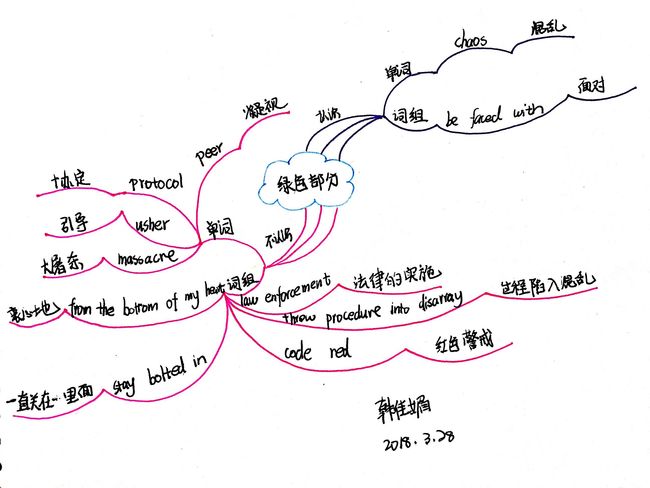 绿色部分
认识
单词
chaos
混乱
词组
be faced with
面对
不认识
单词
peer
凝视
protocol
协定
usher
引导
massacre
大屠杀
词组
law enforcement
法律的实施
throw procedure into disarray
过程陷入混乱
code red
红色警戒
from the bottom of my heart
衷心地
stay bolted in
一直关在…里面
韩佳媚
2018.3.28